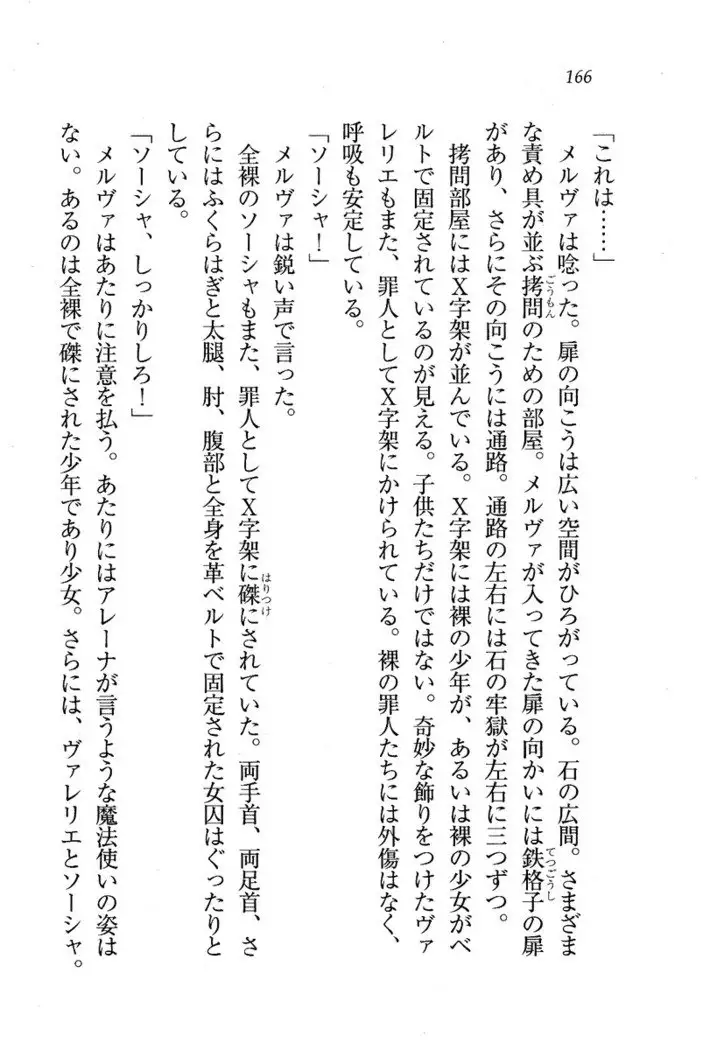 166
「これは……」
メルヴァは唸った。扉の向こうは広い空間がひろがっている。石の広間。さまざま
な責め具が並ぶ拷問のための部屋。メルヴァが入ってきた扉の向かいには鉄格子の扉
があり、さらにその向こうには通路。通路の左右には石の牢獄が左右に三つずつ。
拷問部屋にはX字架が並んでいる。X字架には裸の少年が、あるいは裸の少女がベ
ルトで固定されているのが見える。子供たちだけではない。奇妙な飾りをつけたヴァ
レリエもまた、罪人としてX字架にかけられている。裸の罪人たちには外傷はなく、
呼吸も安定している。
「ソーシャ!」
メルヴァは鋭い声で言った。
全裸のソーシャもまた、罪人としてX字架に磔にされていた。両手首、両足首、さ
らにはふくらはぎと太腿、肘、腹部と全身を革ベルトで固定された女囚はぐったりと
している。
「ソーシャ、しっかりしろ!」
メルヴァはあたりに注意を払う。あたりにはアレーナが言うような魔法使いの姿は
ない。あるのは全裸で磔にされた少年であり少女。さらには、ヴァレリエとソーシャ。